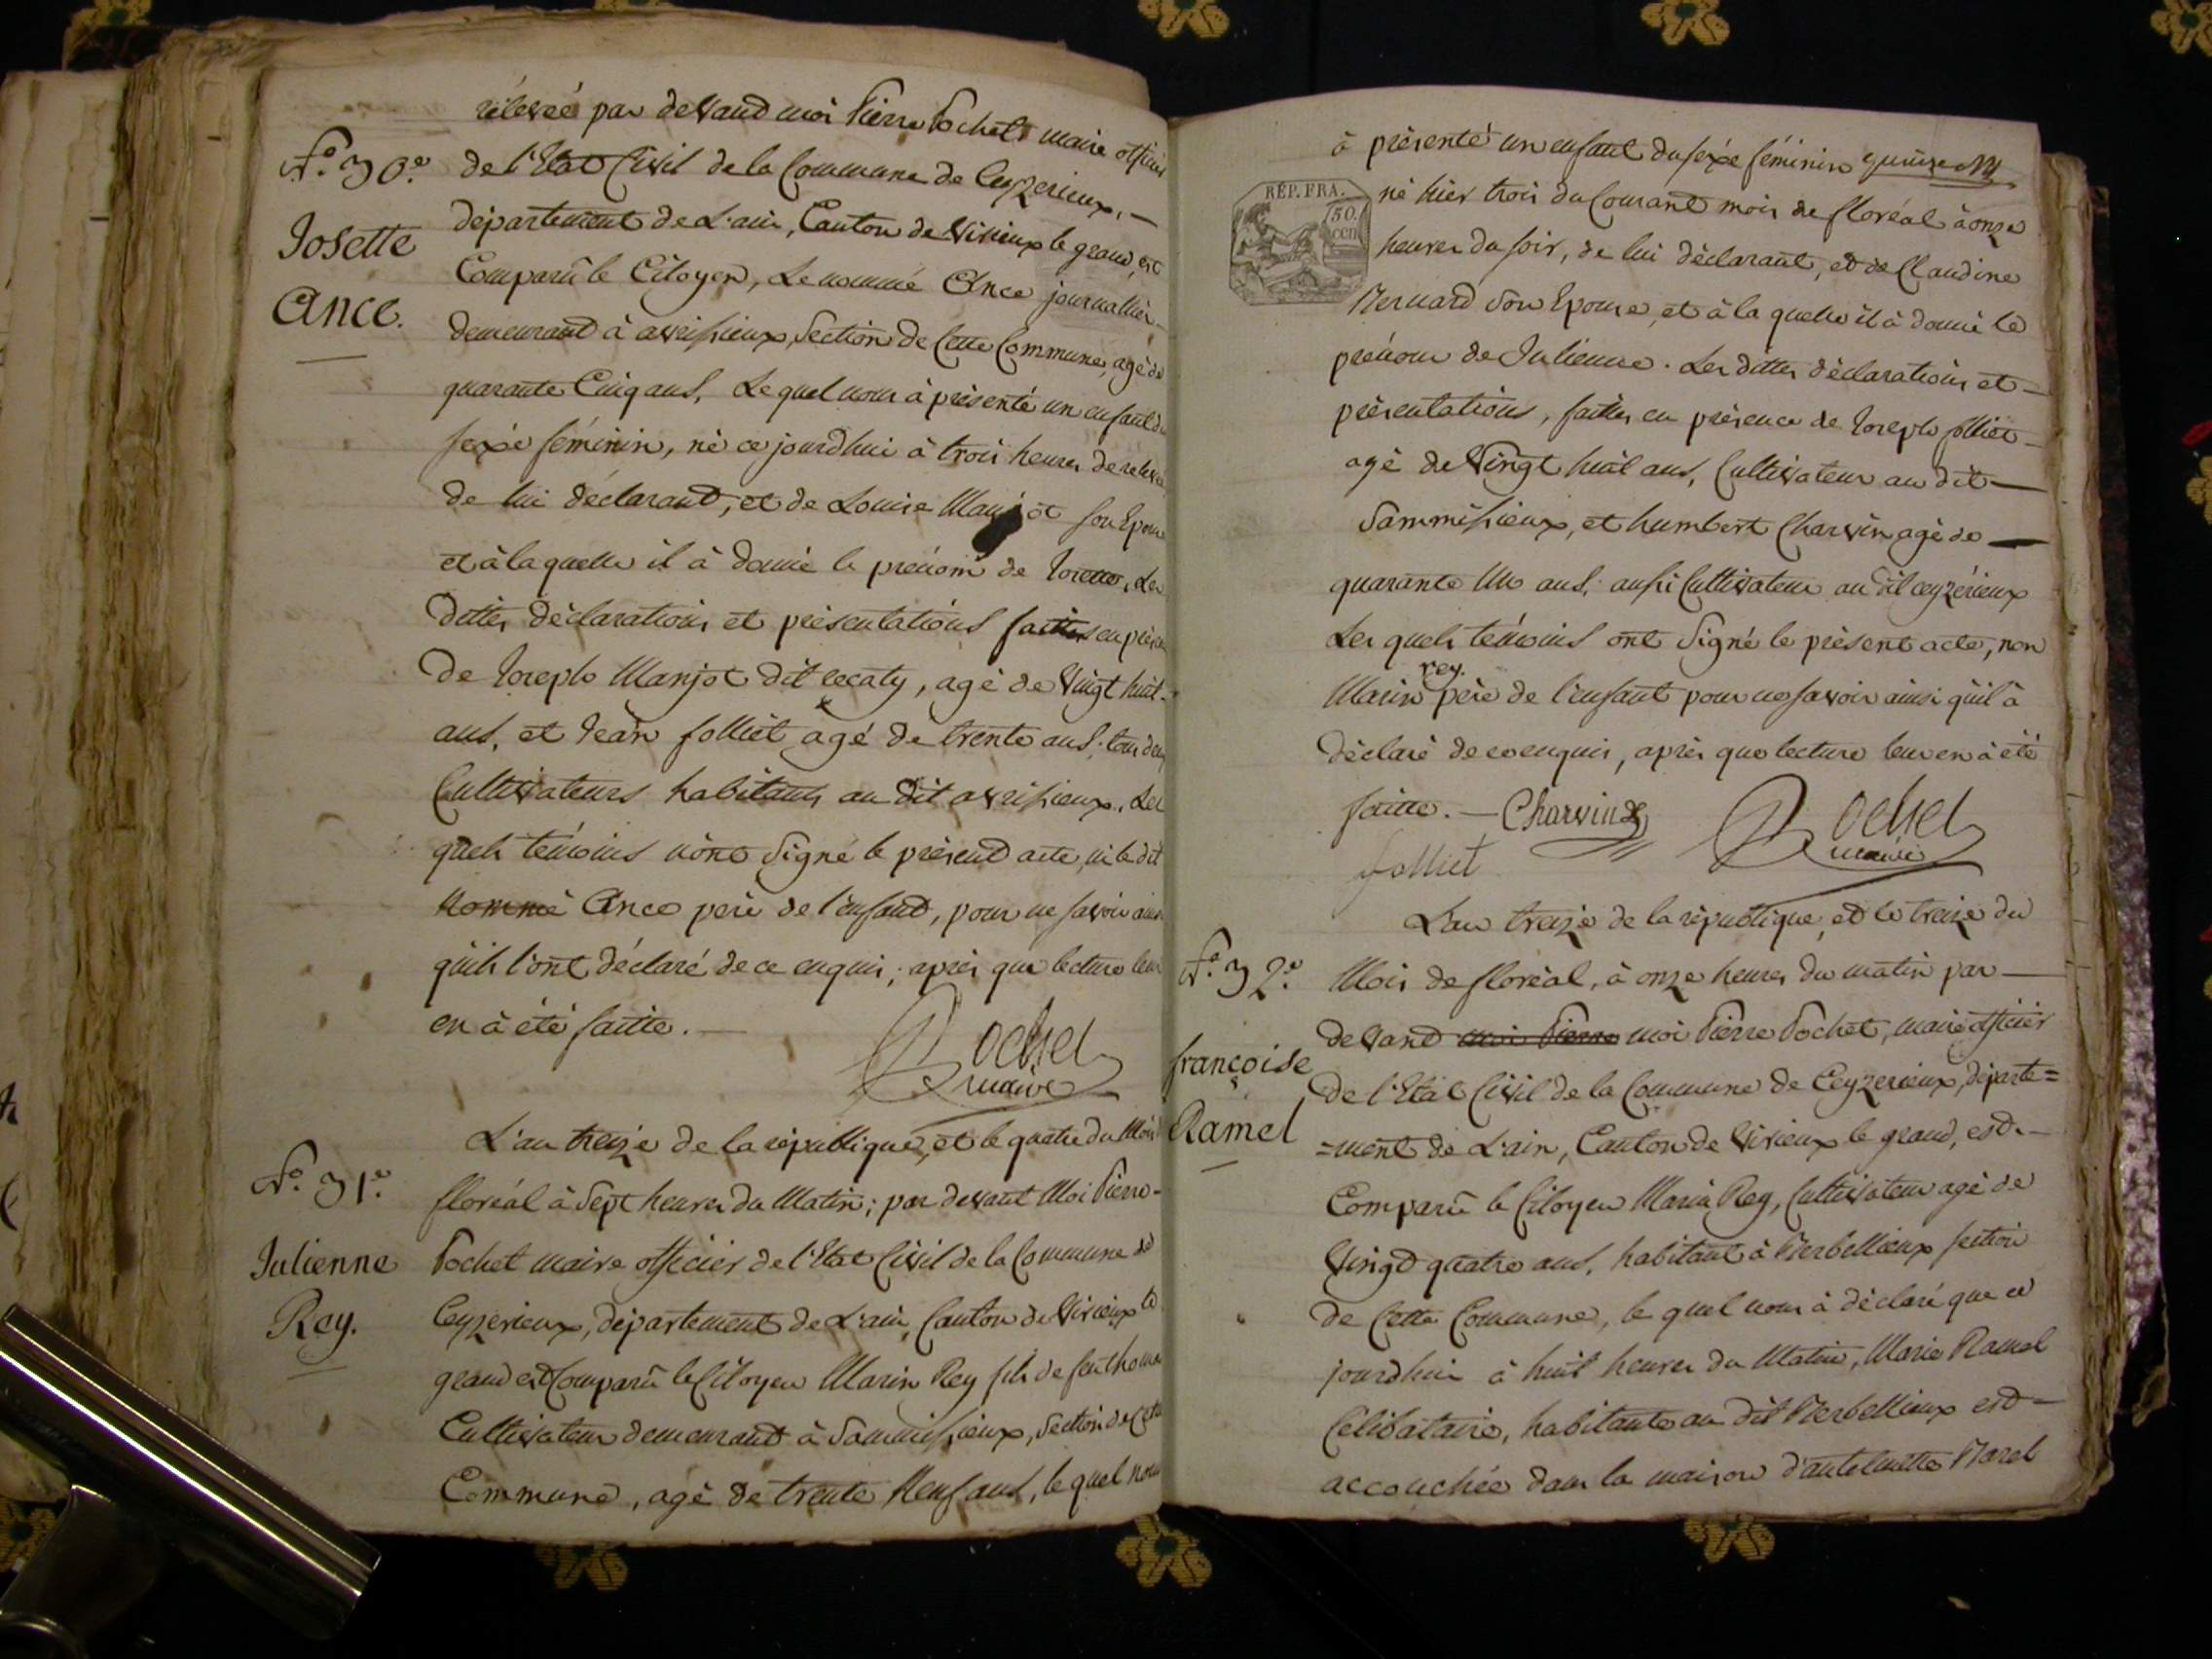 rélevée par devand moi Pierre Pochet maire officier
N.º 30.e
de l'Etat Civil de la Commune de Ceyzerieux, —
département de L'ain, Canton de Virieux le grand, est
Josette
Comparû le Citoyen, Le nommé Ance journallier
Ance.
demeurant à avrissieux, Section de Cette Commune, agé de
quarante Cinq ans, Le quel nous à présenté un enfant du
sexe féminin, né ce jourdhui à trois heures de relevé
de lui déclarant, et de Louise Manjot son Epouse
et à la quelle il à donné le prénom de Josette, Les
dittes déclarations et présentations faittes en présence
de Joseph Manjot dit , agé de Vingt huit
ans, et Jean folliet agé de trente ans; tous deux
Cultivateurs habitants au dit avrissieux. Les
quels témoins n'ont Signé le présend acte, ni le dit
nommé Ance père de l'enfand, pour ne savoir ainsi
quils l'ont déclaré de ce enquis; après que lecture leur
en à été faitte. —
Pochet
maire
L'an treize de la république, et le quatre du Mois
N.º 31.e
floréal à Sept heures du Matin; par devant Moi Pierre
Julienne
Pochet maire officier de l'Etat Civil de la Commune de
Rey.
Ceyzerieux, département de L'ain, Canton de Virieux le
grand est Comparû le Citoyen Marin Rey fils de feu thomas
Cultivateur demeurant à Sammissieux, Section de Cette
Commune, agé de trente Neuf ans, le quel nous
à présenté un enfant du sexe féminin
RÉP. FRA.
50.
cen
né hier trois du Courant mois de floréal à onze
heures du soir, de lui déclarant, et de Claudine
Bernard Son Epouse, et à la quelle il à donné le
prénom de Julienne. Les dittes déclarations et —
présentations, faittes en présence de Joseph folliet —
agé de Vingt huit ans, Cultivateur au dit —
Sammissieux, et humbert Charvin agé de —
quarante Un ans; aussi Cultivateur au dit ceyzérieux
Les quels témoins ont Signé le présent acte, non
rey.
Marin père de l'enfant pour ne savoir ainsi quil à
déclaré de ce enquis, après que lecture leur en à été
faitte. — Charvin
Pochet
maire
folliet
L'an treize de la république, et le treize du
N.º 32.e
Mois de floréal, à onze heures du matin par —
devand moi Pierre moi Pierre Pochet, maire officier
françoise
de l'Etat Civil de la Commune de Ceyzerieux, départe=
Ramel
=ment de L'ain, Canton de Virieux le grand, est —
Comparû le Citoyen Marin Rey, Cultivateur agé de
Vingt quatre ans, habitant à Verbellieux section
de Cette Commune, le quel nous à déclaré que ce
jourdhui à huit heures du Matin, Marie Ramel
Célibataire, habitante au dit Verbellieux est —
accouchée dans la maison d'antelmette